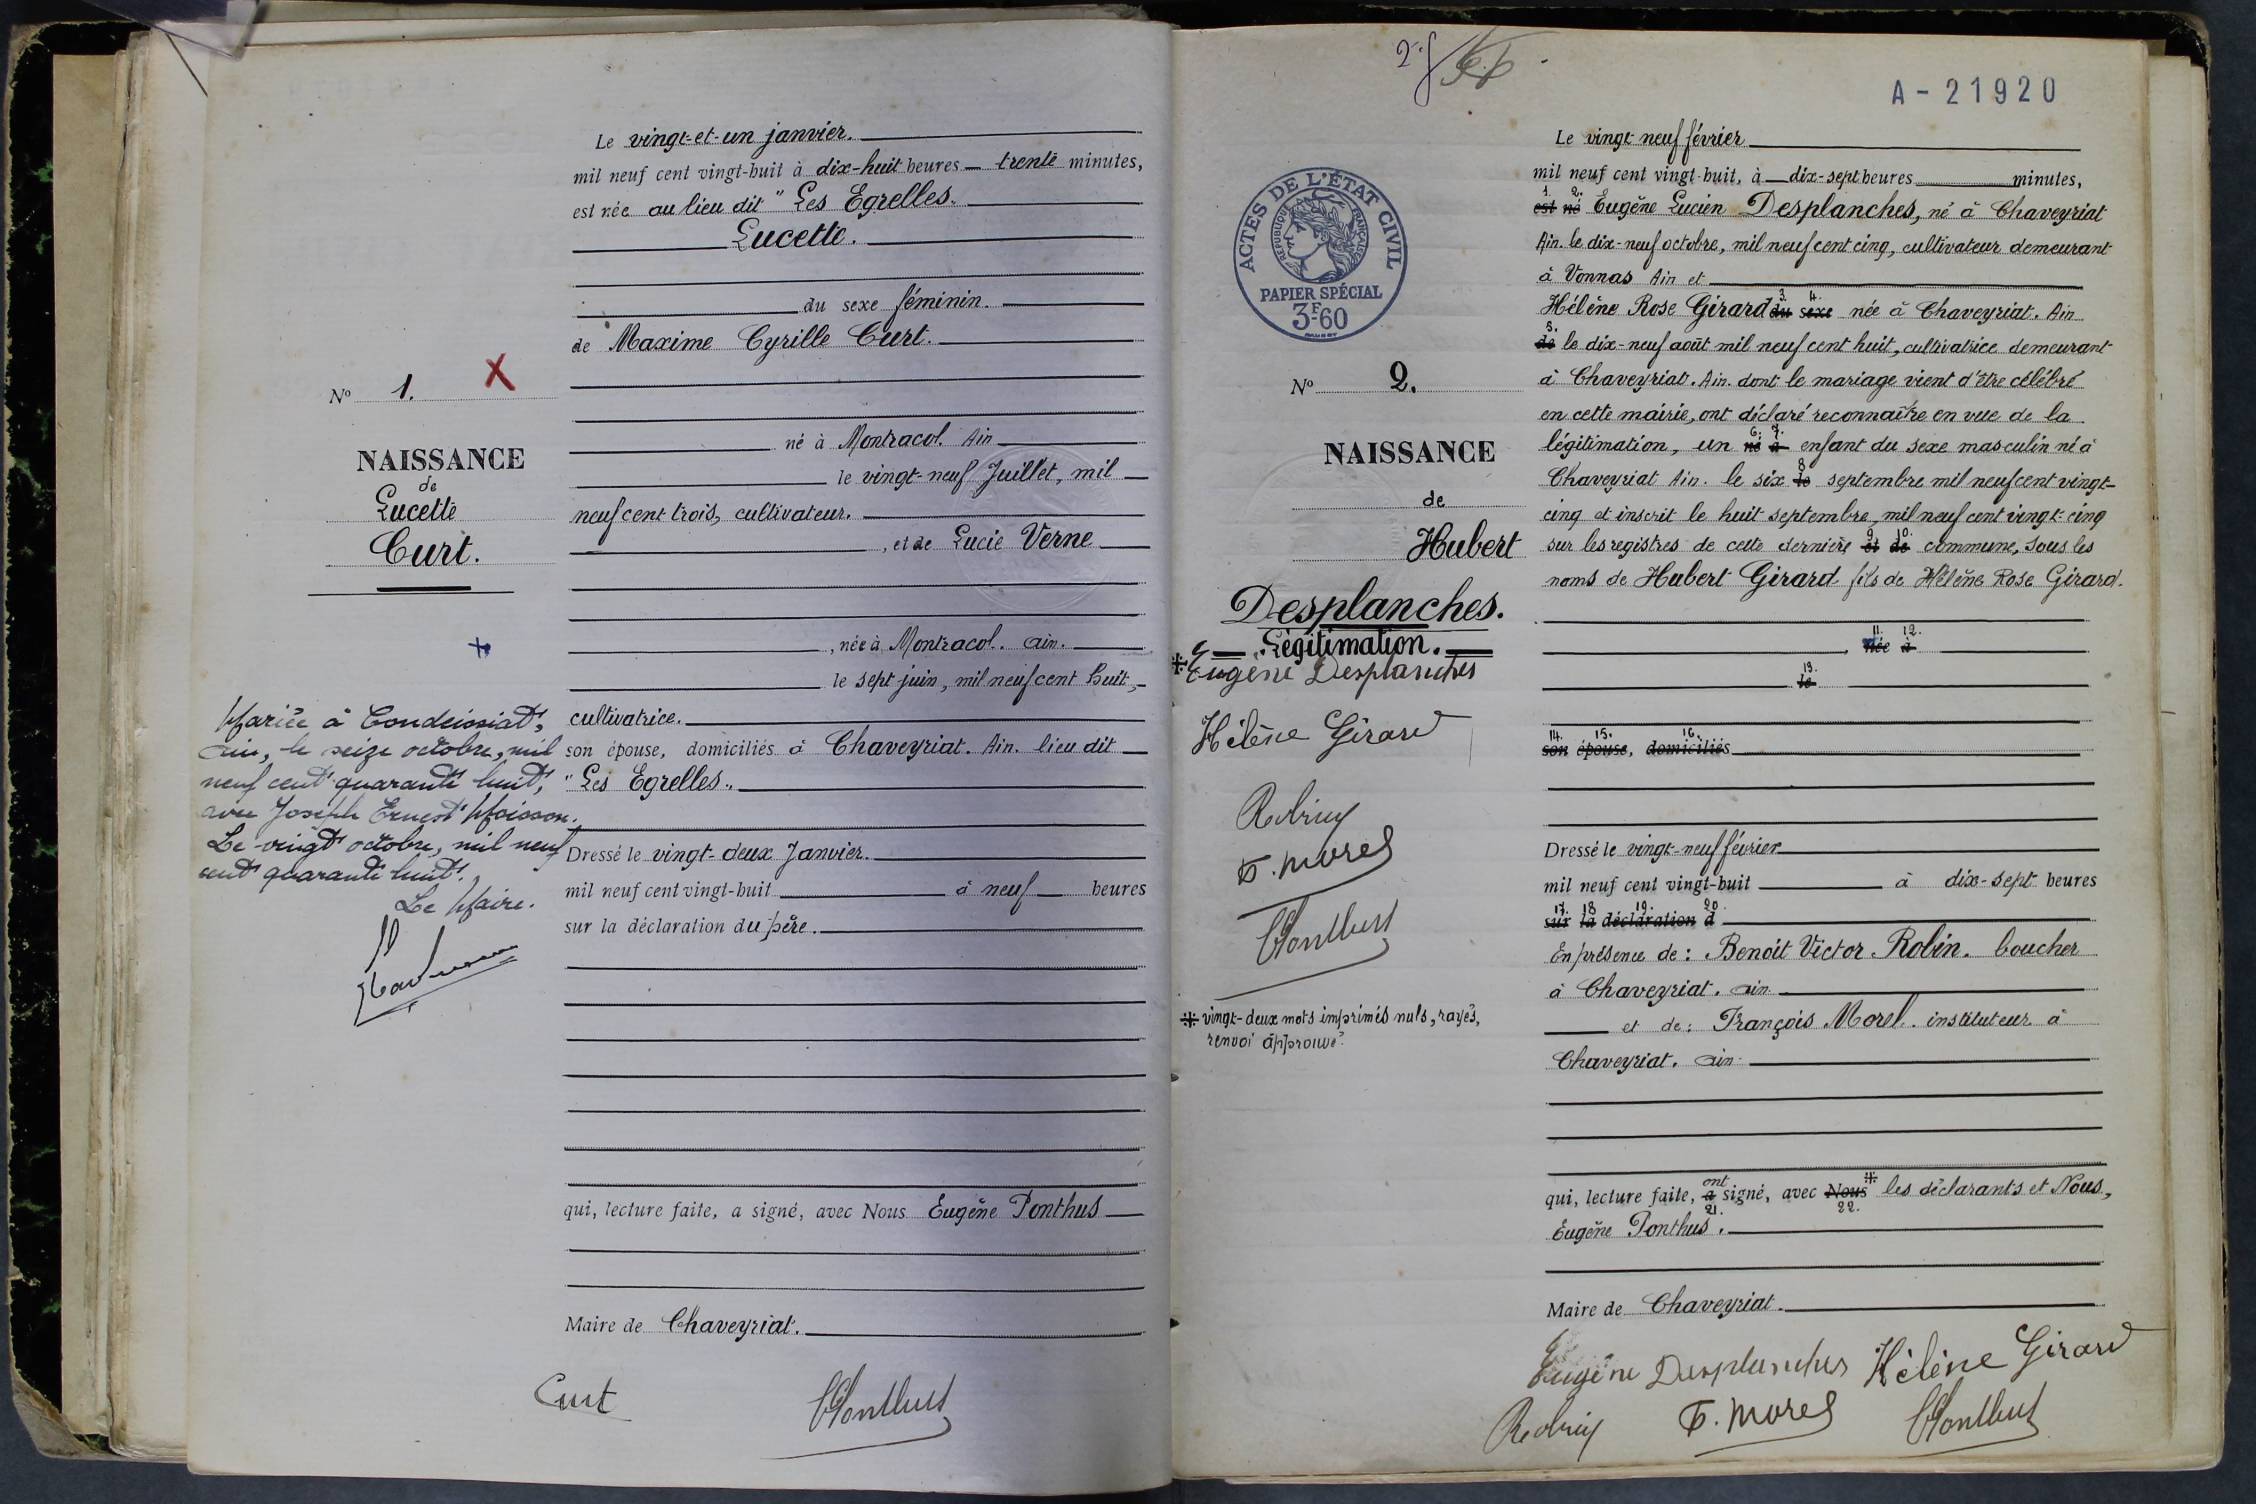 Le vingt-et-un janvier.
mil neuf cent vingt-huit à dix-huit heures trente minutes,
est née au lieu dit "Les Egrelles.
Lucette.
du sexe féminin.
de Maxime Cyrille Curt.
N° 1. X
né à Montracol. Ain
NAISSANCE
de
Lucette
Curt.
le vingt-neuf Juillet, mil
neuf cent trois, cultivateur.
, et de Lucie Verne
, née à Montracol. ain.
le sept juin, mil neuf cent huit,
cultivatrice.
son épouse, domiciliés à Chaveyriat. Ain. lieu dit
"Les Egrelles.,
Mariée à Condeissiat,
Ain, le seize octobre, mil
neuf cent quarante huit,
avec Joseph Ernest Moisson.
Le vingt octobre, mil neuf
cent quarante huit.
Le Maire.
Dressé le vingt-deux Janvier.
mil neuf cent vingt-huit à neuf heures
sur la déclaration du père.
qui, lecture faite, a signé, avec Nous Eugène Ponthus
Maire de Chaveyriat.
Curt
Ponthus
A - 21920
ACTES DE L'ÉTAT CIVIL
RÉPUBLIQUE FRANÇAISE
PAPIER SPÉCIAL
3F60
N° 2.
NAISSANCE
de
Hubert
Desplanches.
Légitimation.
Eugène Desplanches
Hélène Girard
Robin
F. Morel
Ponthus
⁜ vingt-deux mots imprimés nuls, rayés,
renvoi approuvé.
Le vingt-neuf février
mil neuf cent vingt-huit, à dix-sept heures minutes,
1. 2.
est né Eugène Lucien Desplanches, né à Chaveyriat
Ain. le dix-neuf octobre, mil neuf cent cinq, cultivateur demeurant
à Vonnas Ain et
3. 4.
Hélène Rose Girard du sexe née à Chaveyriat. Ain
5.
de le dix-neuf août mil neuf cent huit, cultivatrice demeurant
à Chaveyriat. Ain. dont le mariage vient d'être célébré
en cette mairie, ont déclaré reconnaître en vue de la
6. 7.
légitimation, un né à enfant du sexe masculin né à
8
Chaveyriat Ain. le six le septembre mil neuf cent vingt-
cinq et inscrit le huit septembre, mil neuf cent vingt-cinq
9. 10.
sur les registres de cette dernière et de commune, sous les
noms de Hubert Girard fils de Hélène Rose Girard.
11. 12.
, née à
13.
le
14. 15. 16.
son épouse, domiciliés
Dressé le vingt-neuf février
mil neuf cent vingt-huit à dix-sept heures
17. 18 19. 20
sur la déclaration d
En présence de : Benoit Victor Robin. boucher
à Chaveyriat. ain
et de : François Morel. instituteur à
Chaveyriat. ain.
ont ⁜
qui, lecture faite, a signé, avec Nous les déclarants et Nous,
21. 22.
Eugène Ponthus.
Maire de Chaveyriat.
Eugène Desplanches Hélène Girard
Robin F. Morel Ponthus